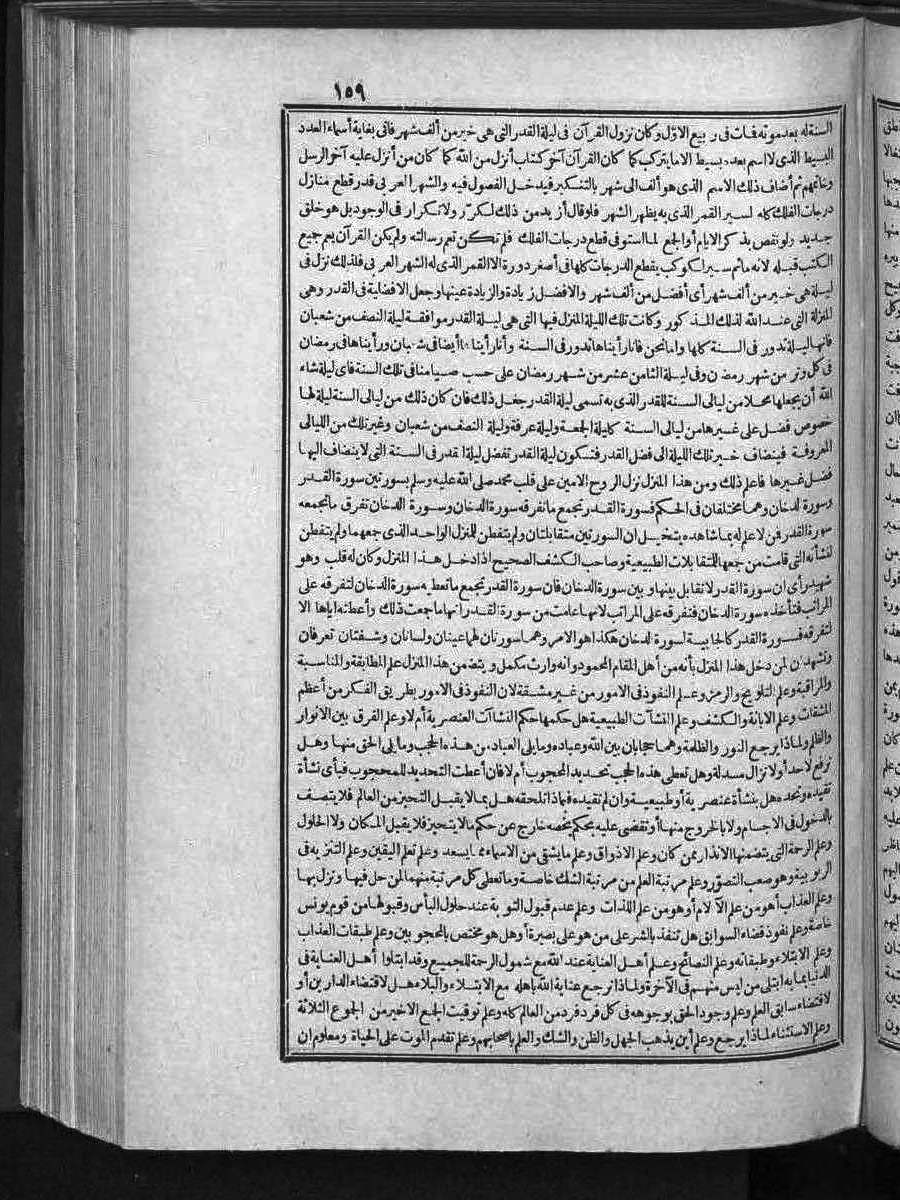 ١٥٩
السنة له بعد موته فمات فى ربيع الاوّل وكان نزول القرآن فى ليلة القدر التى هى خير من ألف شهر فاتى بغاية أسماء العدد
البسيط الذى لا اسم بعده بسيط الا ما يتركب كما كان القرآن آخر كتاب أنزل من الله كما كان من أنزل عليه آخر الرسل
وخاتمهم ثم أضاف ذلك الاسم الذى هو ألف الى شهر بالتنكير فيدخل الفصول فيه والشهر العربى قدر قطع منازل
درجات الفلك كله لسير القمر الذى به يظهر الشهر فلو قال أزيد من ذلك لكرّر ولا تكرار فى الوجود بل هو خلق
جديد ولو نقص بذكر الايام أو الجمع لما استوفى قطع درجات الفلك فلم تكن تعم رسالته ولم يكن القرآن يعم جميع
الكتب قبله لانه ما ثم سير لكوكب يقطع الدرجات كلها فى أصغر دورة الا القمر الذى له الشهر العربى فلذلك نزل فى
ليلة هى خير من ألف شهر أى أفضل من ألف شهر والافضل زيادة والزيادة عينها وجعل الافضلية فى القدر وهى
المنزلة التى عند الله لذلك المذكور وكانت تلك الليلة المنزل فيها التى هى ليلة القدر موافقة ليلة النصف من شعبان
فانها ليلة تدور فى السنة كلها واما نحن فانا رأيناها تدور فى السنة وأنا رأيناها أيضا فى شعبان ورأيناها فى رمضان
فى كل وتر من شهر رمضان وفى ليلة الثامن عشر من شهر رمضان على حسب صيامنا فى تلك السنة فاى ليلة شاء
الله أن يجعلها محلا من ليالى السنة للقدر الذى به تسمى ليلة القدر جعل ذلك فان كان ذلك من ليالى السنة ليلة لها
خصوص فضل على غيرها من ليالى السنة كليلة الجمعة وليلة عرفة وليلة النصف من شعبان وغير تلك من الليالى
المعروفة فينضاف خير تلك الليلة الى فضل القدر فتكون ليلة القدر تفضل ليلة القدر فى السنة التى لا ينضاف اليها
فضل غيرها فاعلم ذلك ومن هذا المنزل نزل الروح الامين على قلب محمد صلى الله عليه وسلم بسورتين سورة القدر
وسورة الدخان وهما مختلفان فى الحكم فسورة القدر تجمع ما تفرقه سورة الدخان وسورة الدخان تفرق ما تجمعه
سورة القدر فمن لا علم له بما شاهده يتخيل ان السورتين متقابلتان ولم يتفطن للمنزل الواحد الذى جمعهما ولم يتفطن
لنشأته التى قامت من جمعها للمتقابلات الطبيعية وصاحب الكشف الصحيح اذا دخل هذا المنزل وكان له قلب وهو
شهيد رأى ان سورة القدر لا تقابل بينها وبين سورة الدخان فان سورة القدر تجمع ما تعطيه سورة الدخان لتفرقه على
المراتب فتأخذه سورة الدخان فتفرقه على المراتب لانها علمت من سورة القدر انها ما جمعت ذلك وأعطته اياها الا
لتفرقه فسورة القدر كالجابية لسورة الدخان هكذا هو الامر وهما سورتان لهما عينان ولسانان وشفتان تعرفان
وتشهدان لمن دخل هذا المنزل بأنه من أهل المقام المحمود وانه وارث مكمل ويتضمن هذا المنزل علم المطابقة والمناسبة
والمراقبة وعلم التلويح والرمز وعلم النفوذ فى الامور من غير مشقة لان النفوذ فى الامور بطريق الفكر من أعظم
المشقات وعلم الابانة والكشف وعلم النشآت الطبيعية هل حكمها حكم النشآت العنصرية أم لا وعلم الفرق بين الانوار
والظلم ولماذا يرجع النور والظلمة وهما حجابان بين الله وعباده وما يلى العباد من هذه الحجب وما يلى الحق منها وهل
ترفع لاحد أو لا تزال مسدلة وهل تعطى هذه الحجب تحديد المحجوب أم لا فان أعطت التحديد للمحجوب فبأى نشأة
تقيده وتحده هل بنشأة عنصرية أو طبيعية وان لم تقيده فماذا تلحقه هل بما لا يقبل التحيز من العالم فلا يتصف
بالدخول فى الاجسام ولا بالخروج منها أو تقضى عليه بحكم يخصه خارج عن حكم ما لا يتحيز فلا يقبل المكان ولا الحلول
وعلم الرحمة التى يتضمنها الانذار ممن كان وعلم الاذواق وعلم ما يشقى من الاسماء مما يسعد وعلم تعلم اليقين وعلم التنزيه فى
الربوبية وهو صعب التصوّر وعلم مرتبة العلم من مرتبة الشك خاصة وما تعطى كل مرتبة منهما لمن حل فيها ونزل بها
وعلم العذاب أهو من علم الآلام أو هو من علم اللذات وعلم عدم قبول التوبة عند حلول البأس وقبولها من قوم يونس
خاصة وعلم نفوذ قضاء السوابق هل تنفذ بالشر على من هو على بصيرة أو هل هو مختص بالمحجوبين وعلم طبقات العذاب
وعلم الابتلاء وطبقاته وعلم النصائح وعلم أهل العناية عند الله مع شمول الرحمة للجميع وقد ابتلوا أهل العناية فى
الدنيا بما به ابتلى من ليس منهم فى الآخرة ولماذا ترجع عناية الله باهله مع الابتلاء والبلاء هل لاقتضاء الدارين أو
لاقتضاء سابق العلم وعلم وجود الحق بوجوهه فى كل فرد فرد من العالم كله وعلم توقيت الجمع الاخير من الجموع الثلاثة
وعلم الاستثناء لماذا يرجع وعلم أين يذهب الجهل والظن والشك والعلم باصحابهم وعلم تقدم الموت على الحياة ومعلوم ان